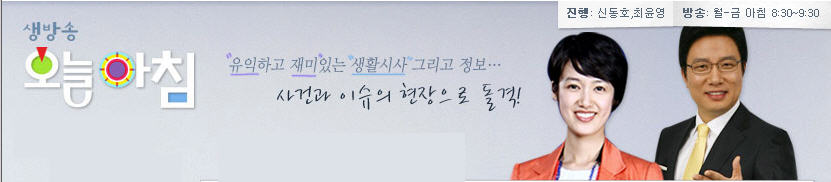 진행: 신동호,최윤영 방송: 월-금 아침 8:30~9:30
생방송
오늘아침
"유익하고 재미"있는 "생활시사" 그리고 정보...
사건과 이슈의 현장으로 돌격!